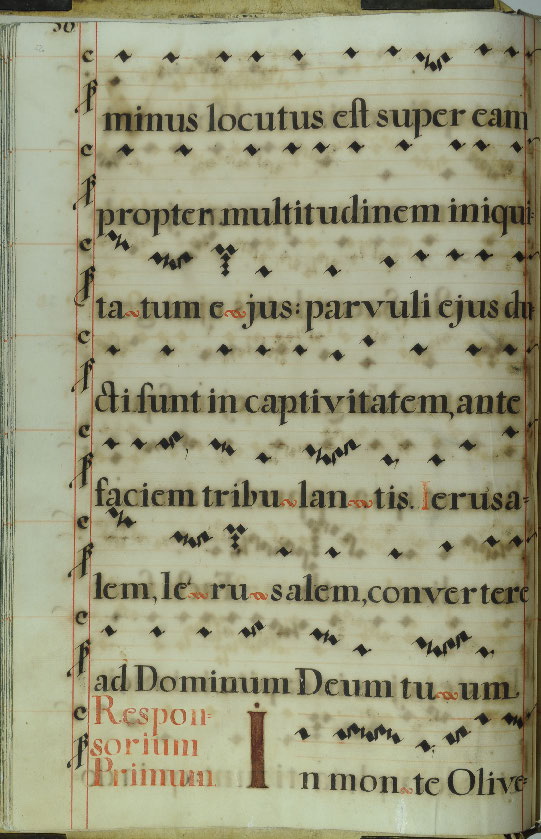 minus locutus est super eam
propter multitudinem iniqui-
ta tum e jus: parvuli ejus du
cti sunt in captivitatem, ante
faciem tribu lan tis. Ierusa-
lem, Ie ru salem, convertere
ad Dominum Deum tu um
Respon-
sorium
Primum.
In mon te Olive-